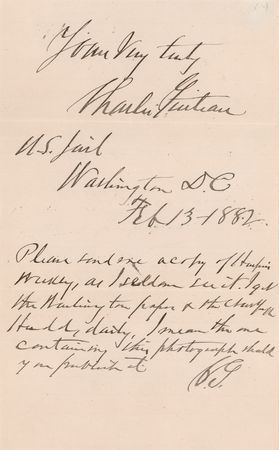 Yours Very truly
Charles Guiteau
U.S. Jail
Washington D C
Feb 13-1882.
Please send me a copy of Harpers
Weekly, as I seldom see it. I get
the Washington papers & the New York
Herald, daily, I mean the one
containing this photograph should
you publish it
C.G.